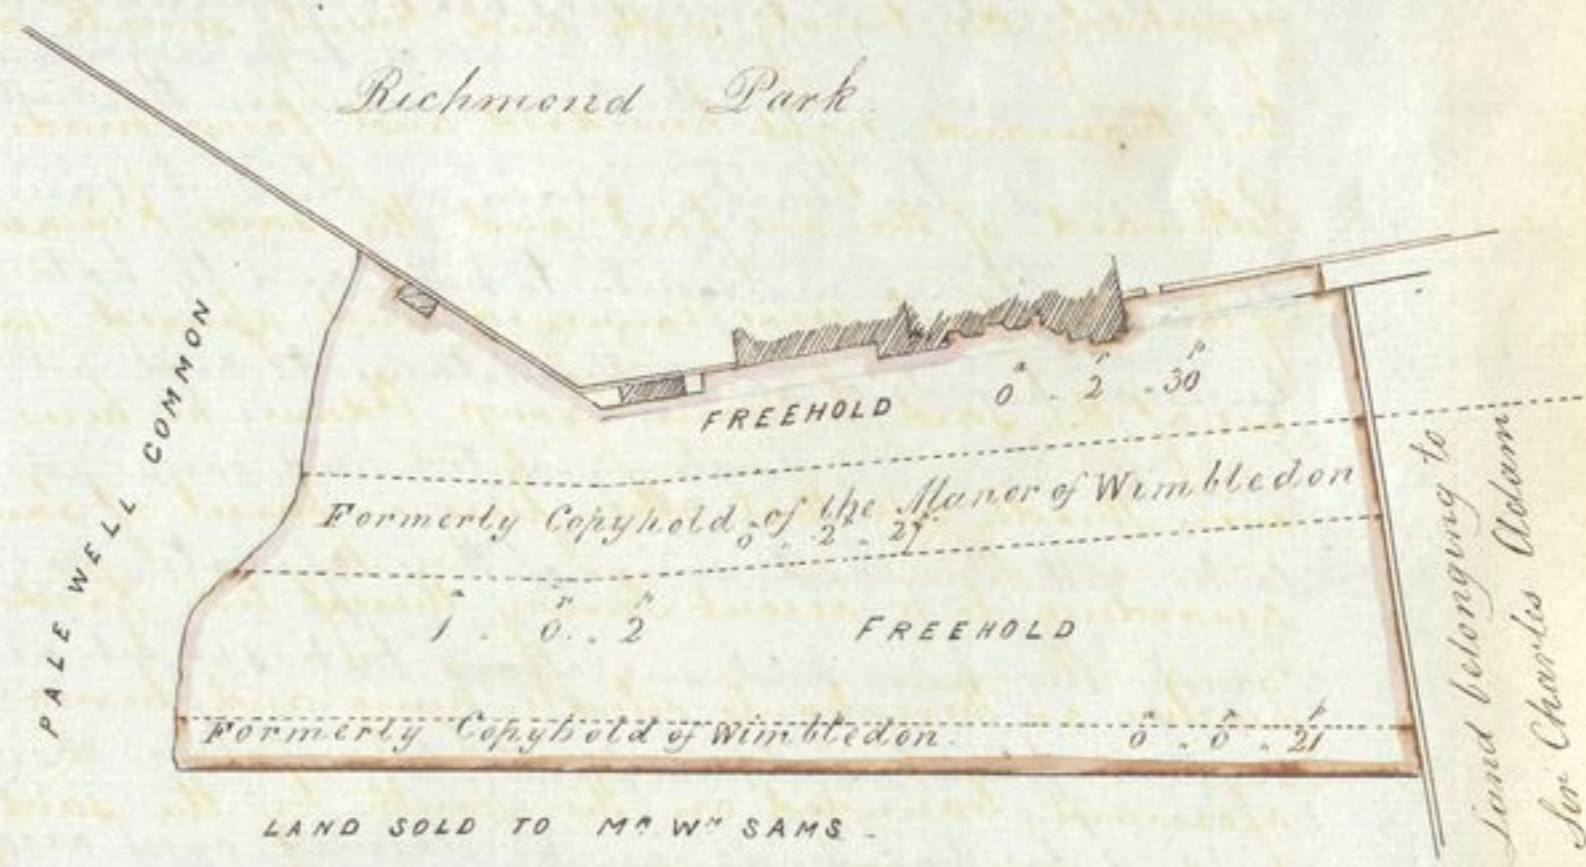 Richmond Park.
PALE WELL COMMON
FREEHOLD
a r p
0 . 2 . 30
Formerly Copyhold of the Manor of Wimbledon
a r p
0 . 2 . 27
a r p
1 . 0 . 2
FREEHOLD
Formerly Copyhold of Wimbledon.
a r p
0 . 0 . 21
LAND SOLD TO Mr Wm SAMS
Land belonging to
Sir Charles Adam